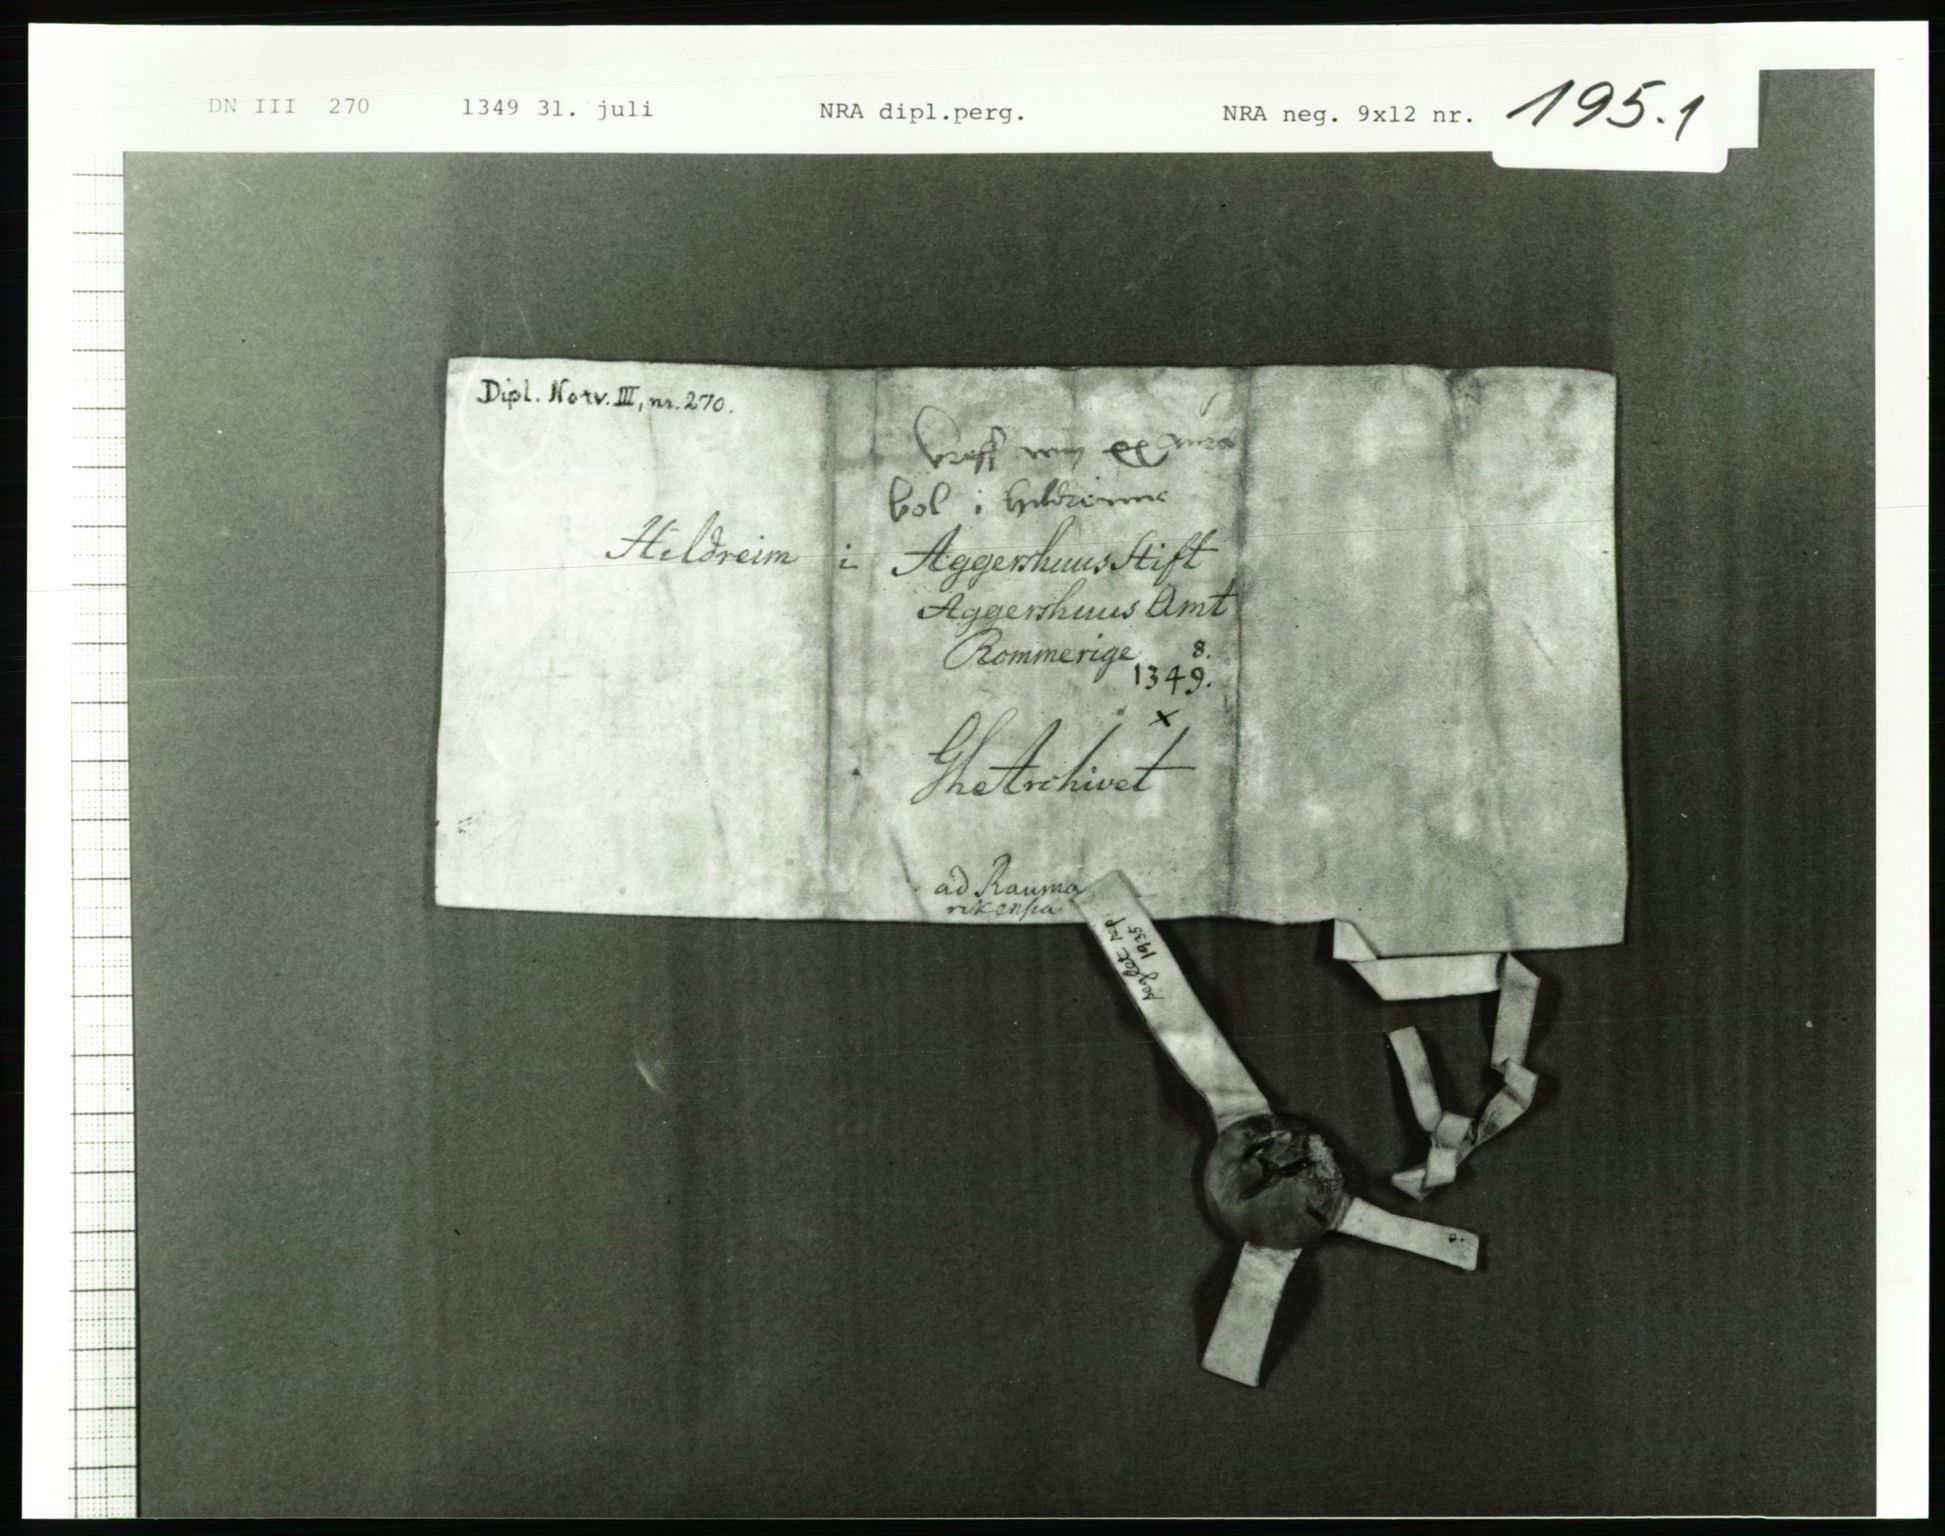 DN III 270 1349 31. juli NRA dipl.perg. NRA neg. 9x12 nr. 195.1
Dipl. Norv. III, nr. 270.
breff um xx aura
bol i hildreime
Hildreim i Aggershuus Stift
Aggershuus Amt
Rommerige 8.
1349.
x
Ghe Archivet
ad Rauma
rikensia
seglet rep.
1935